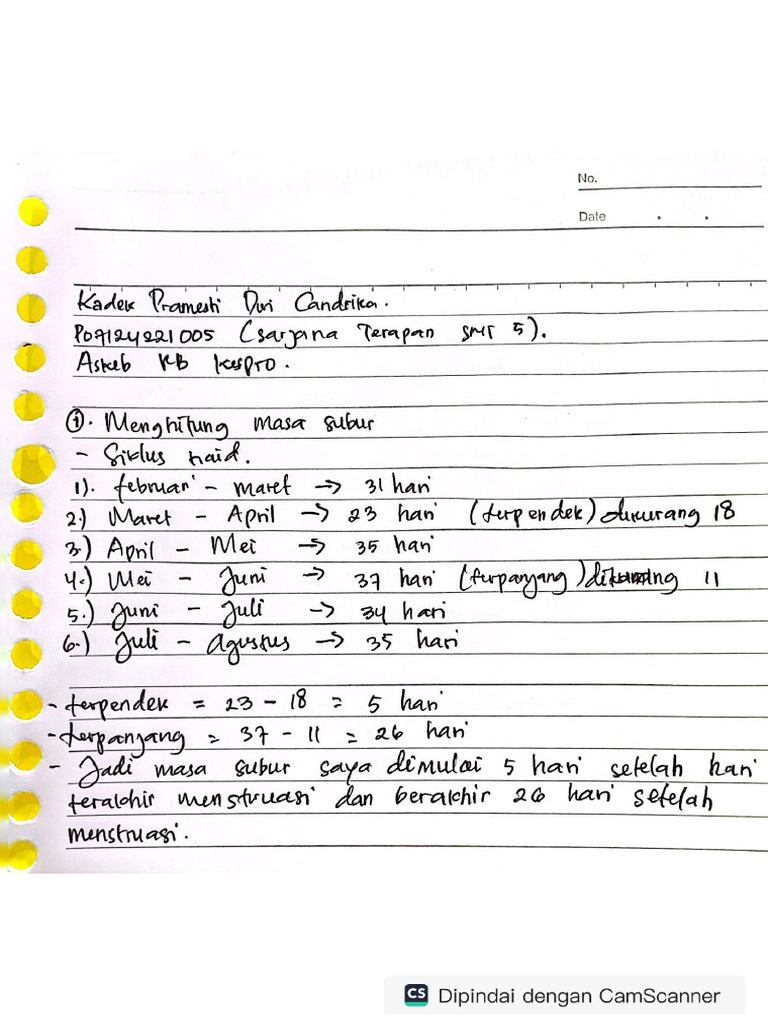 No.
Date . .
Kadek Pramesti Dwi Candrika.
P07124221005 (Sarjana Terapan SMT 5).
Askeb KB Kespro.
①. Menghitung masa subur
- Siklus haid.
1). februari - maret → 31 hari
2.) Maret - April → 23 hari (terpendek) dikurang 18
3.) April - Mei → 35 hari
4.) Mei - Juni → 37 hari (terpanjang) dikurang 11
5.) Juni - Juli → 34 hari
6.) Juli - Agustus → 35 hari
- terpendek = 23 - 18 = 5 hari
- terpanjang = 37 - 11 = 26 hari
- Jadi masa subur saya dimulai 5 hari setelah hari
terakhir menstruasi dan berakhir 26 hari setelah
menstruasi.
CS Dipindai dengan CamScanner